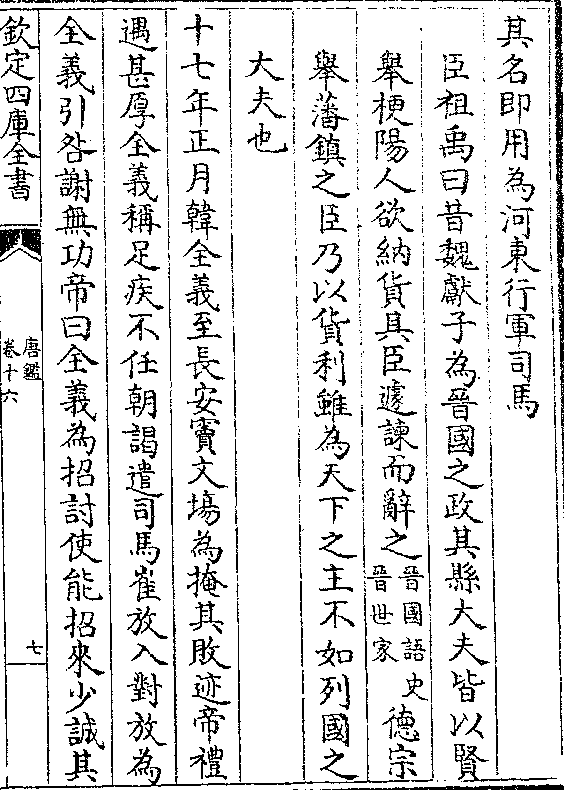 其名即用為河東行軍司馬
臣祖禹曰昔魏獻子為晉國之政其縣大夫皆以賢
舉梗陽人欲納貨其臣遽諫而辭之晉國語史晉世家德宗
舉藩鎮之臣乃以貨利雖為天下之主不如列國之
大夫也
十七年正月韓全義至長安竇文場為掩其敗迹帝禮
遇甚厚全義稱足疾不任朝謁遣司馬崔放入對放為
全義引咎謝無功帝曰全義為招討使能招來少誠其
欽定四庫全書
唐鑑
卷十六
七